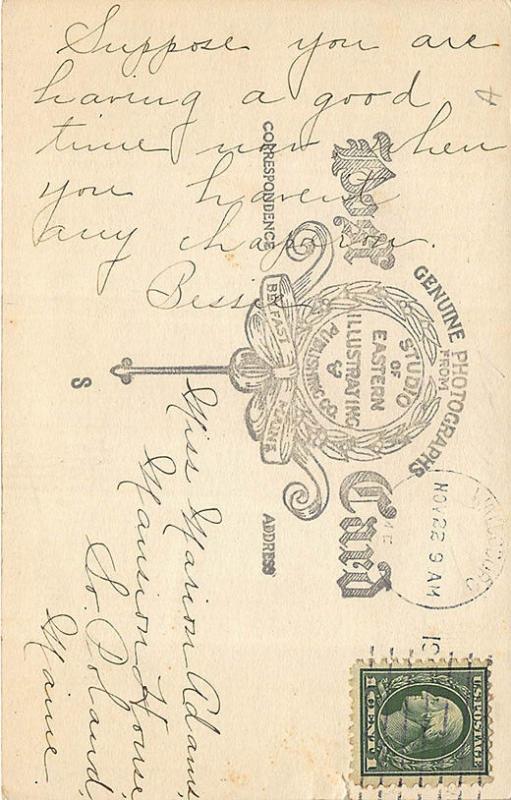 Suppose you are
having a good
time now when
you havent
any chaperon.
Bessie
Post Card
CORRESPONDENCE
ADDRESS
GENUINE PHOTOGRAPHS
FROM
STUDIO
OF
EASTERN
ILLUSTRATING
&
PUBLISHING CO
BELFAST MAINE
S
Miss Marion Adams,
Mansion House,
So. Poland,
Maine.
NOV 22 9 AM
ME
U.S. POSTAGE
1 CENT 1